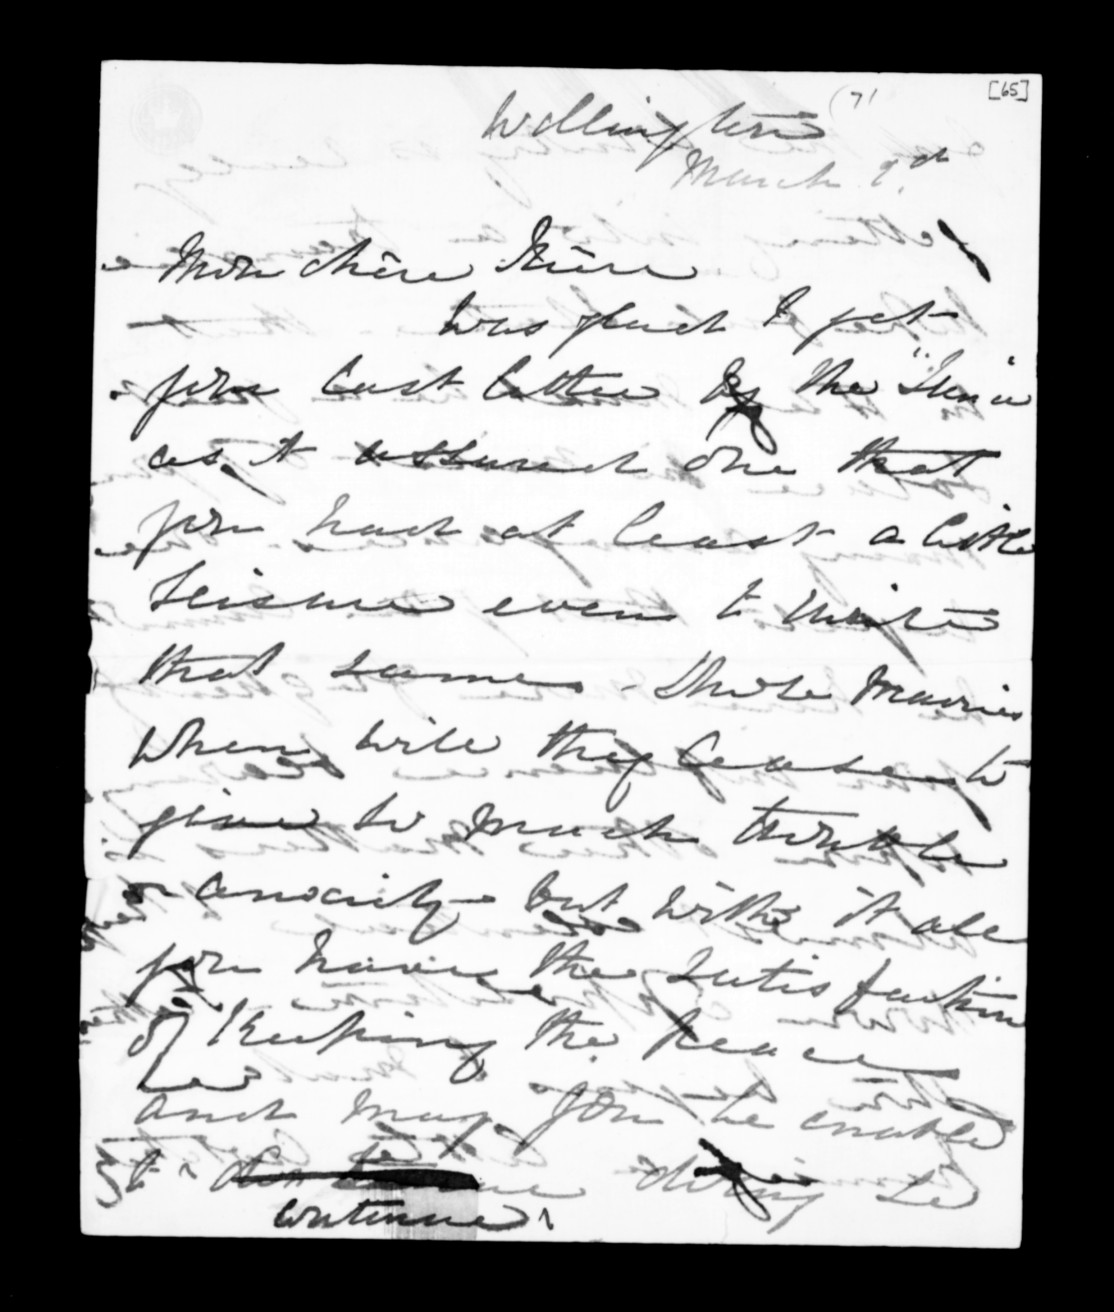 [65]
71
Wellington
March 9th
Mon chère
Was glad I got
your last letter by the
as it assured one that
you had at least a little
Leisure even to write
that same - Those Maories
when will they cease to
give so much trouble
& anxiety - but with it all
you have the Satisfaction
of Keeping the Peace
and may you be enabled
to continue doing so
continue